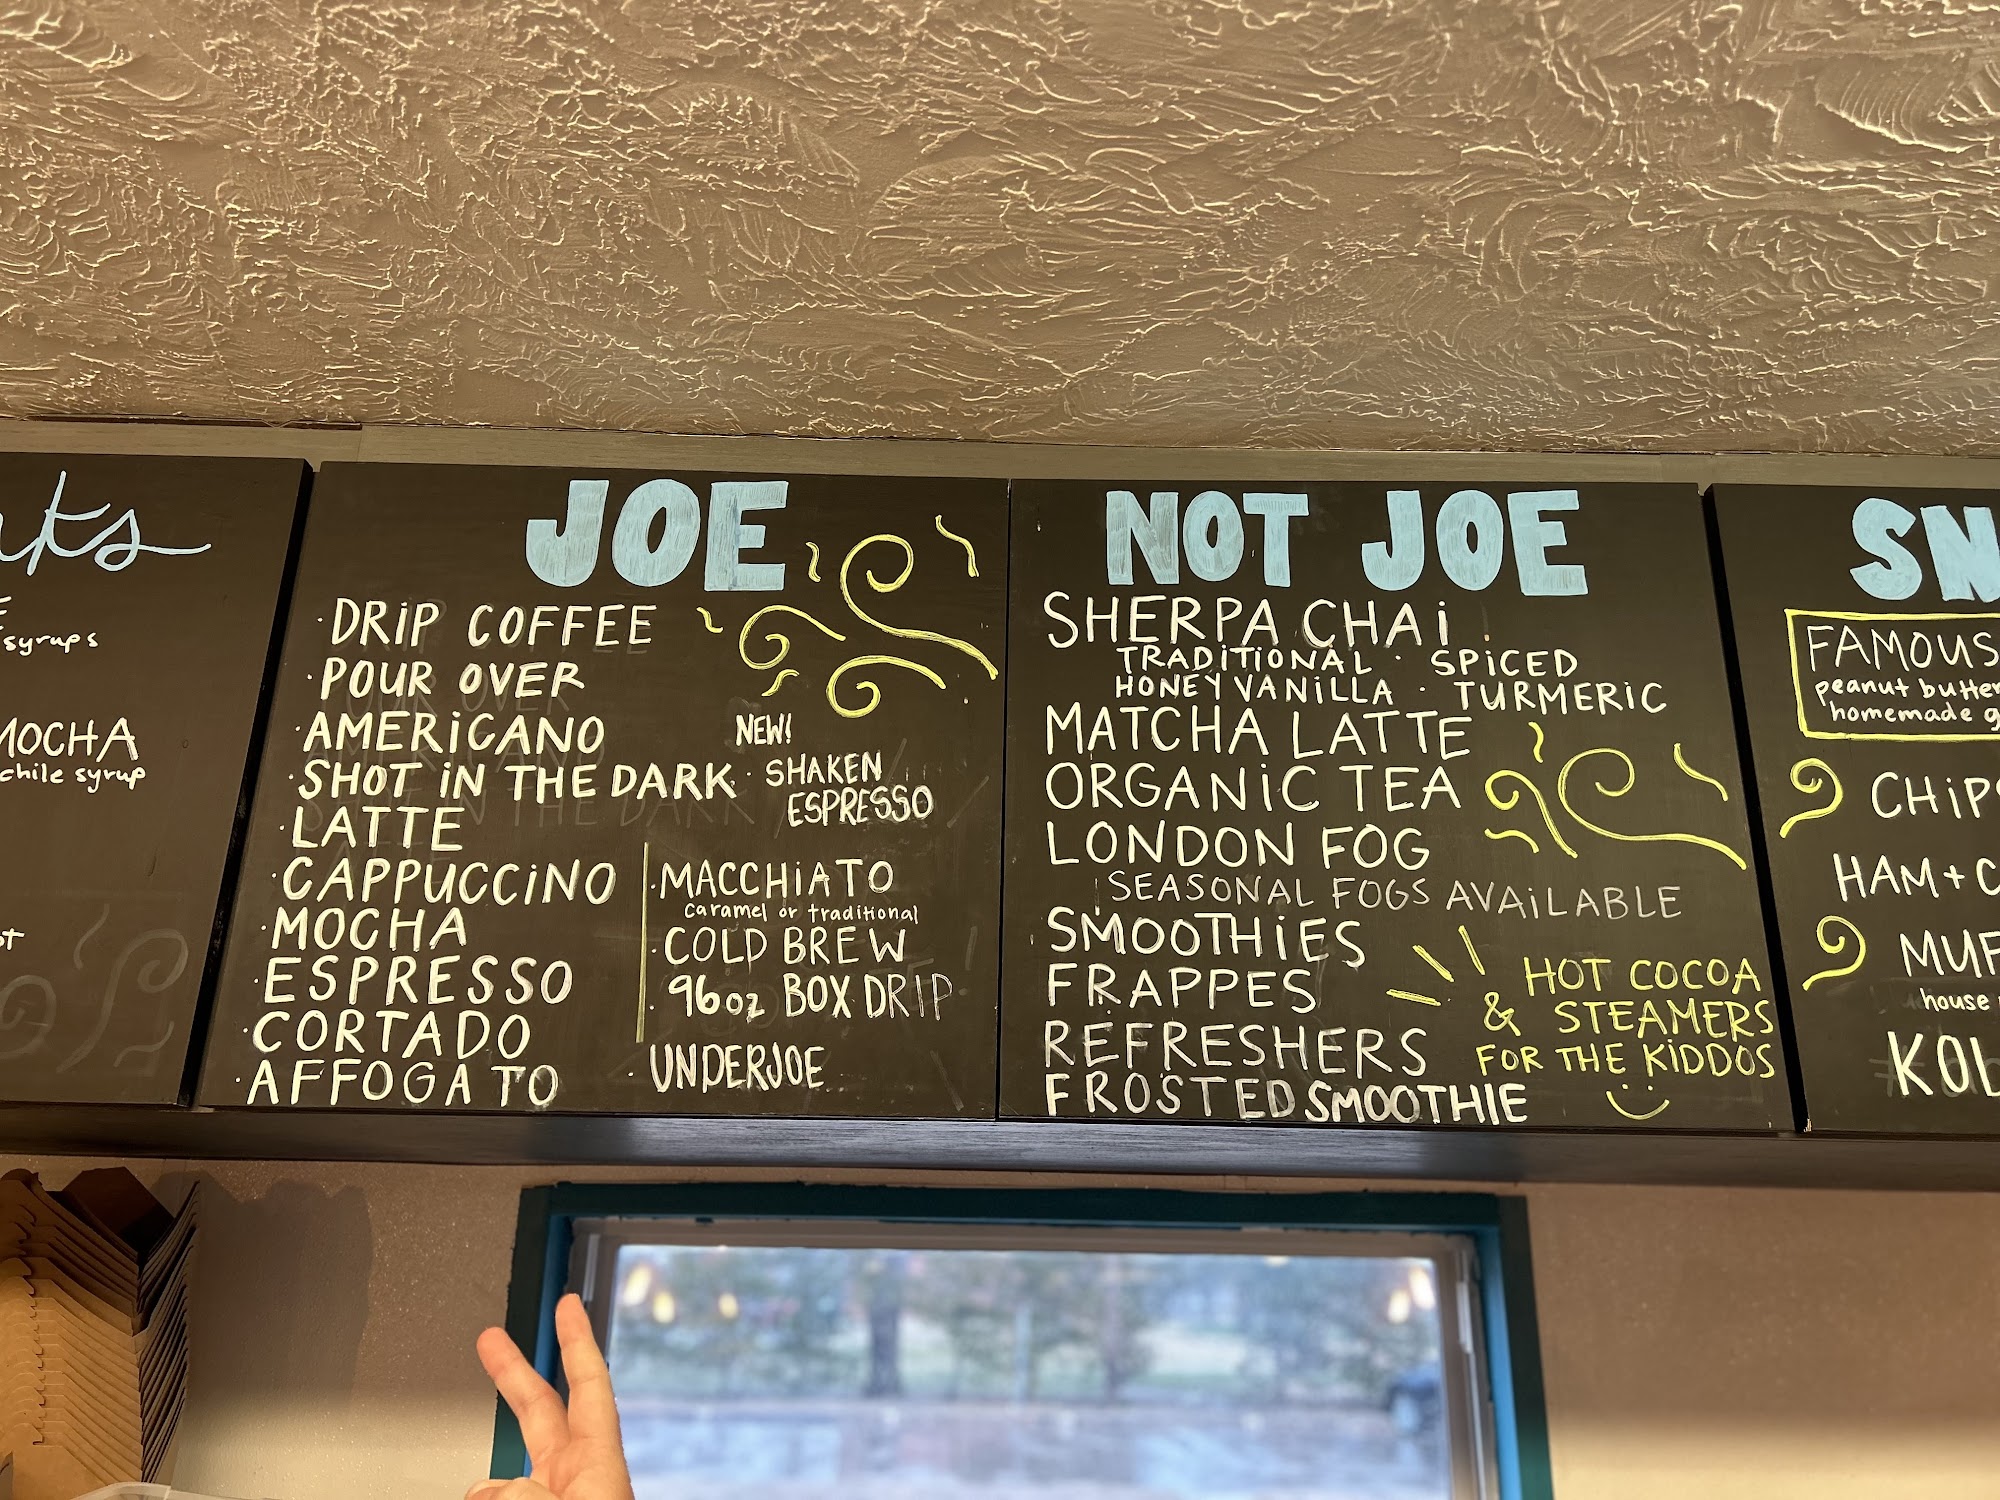 syrups
MOCHA
chile syrup
JOE
· DRIP COFFEE
· POUR OVER
· AMERICANO
· SHOT IN THE DARK
· LATTE
· CAPPUCCINO
· MOCHA
· ESPRESSO
· CORTADO
· AFFOGATO
NEW!
· SHAKEN
ESPRESSO
· MACCHIATO
caramel or traditional
· COLD BREW
· 96oz BOX DRIP
· UNDERJOE
NOT JOE
SHERPA CHAI
TRADITIONAL · SPICED
HONEY VANILLA · TURMERIC
MATCHA LATTE
ORGANIC TEA
LONDON FOG
SEASONAL FOGS AVAILABLE
SMOOTHIES
FRAPPES
REFRESHERS
FROSTED SMOOTHIE
HOT COCOA
& STEAMERS
FOR THE KIDDOS
SN
FAMOUS
peanut butter
homemade g
CHIPS
HAM + C
MUF
house
KOL